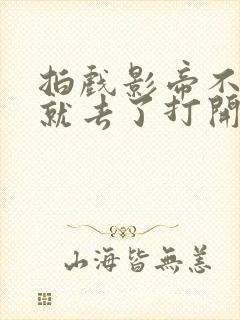 拍戲影帝不
就去了打開
山海皆無恙